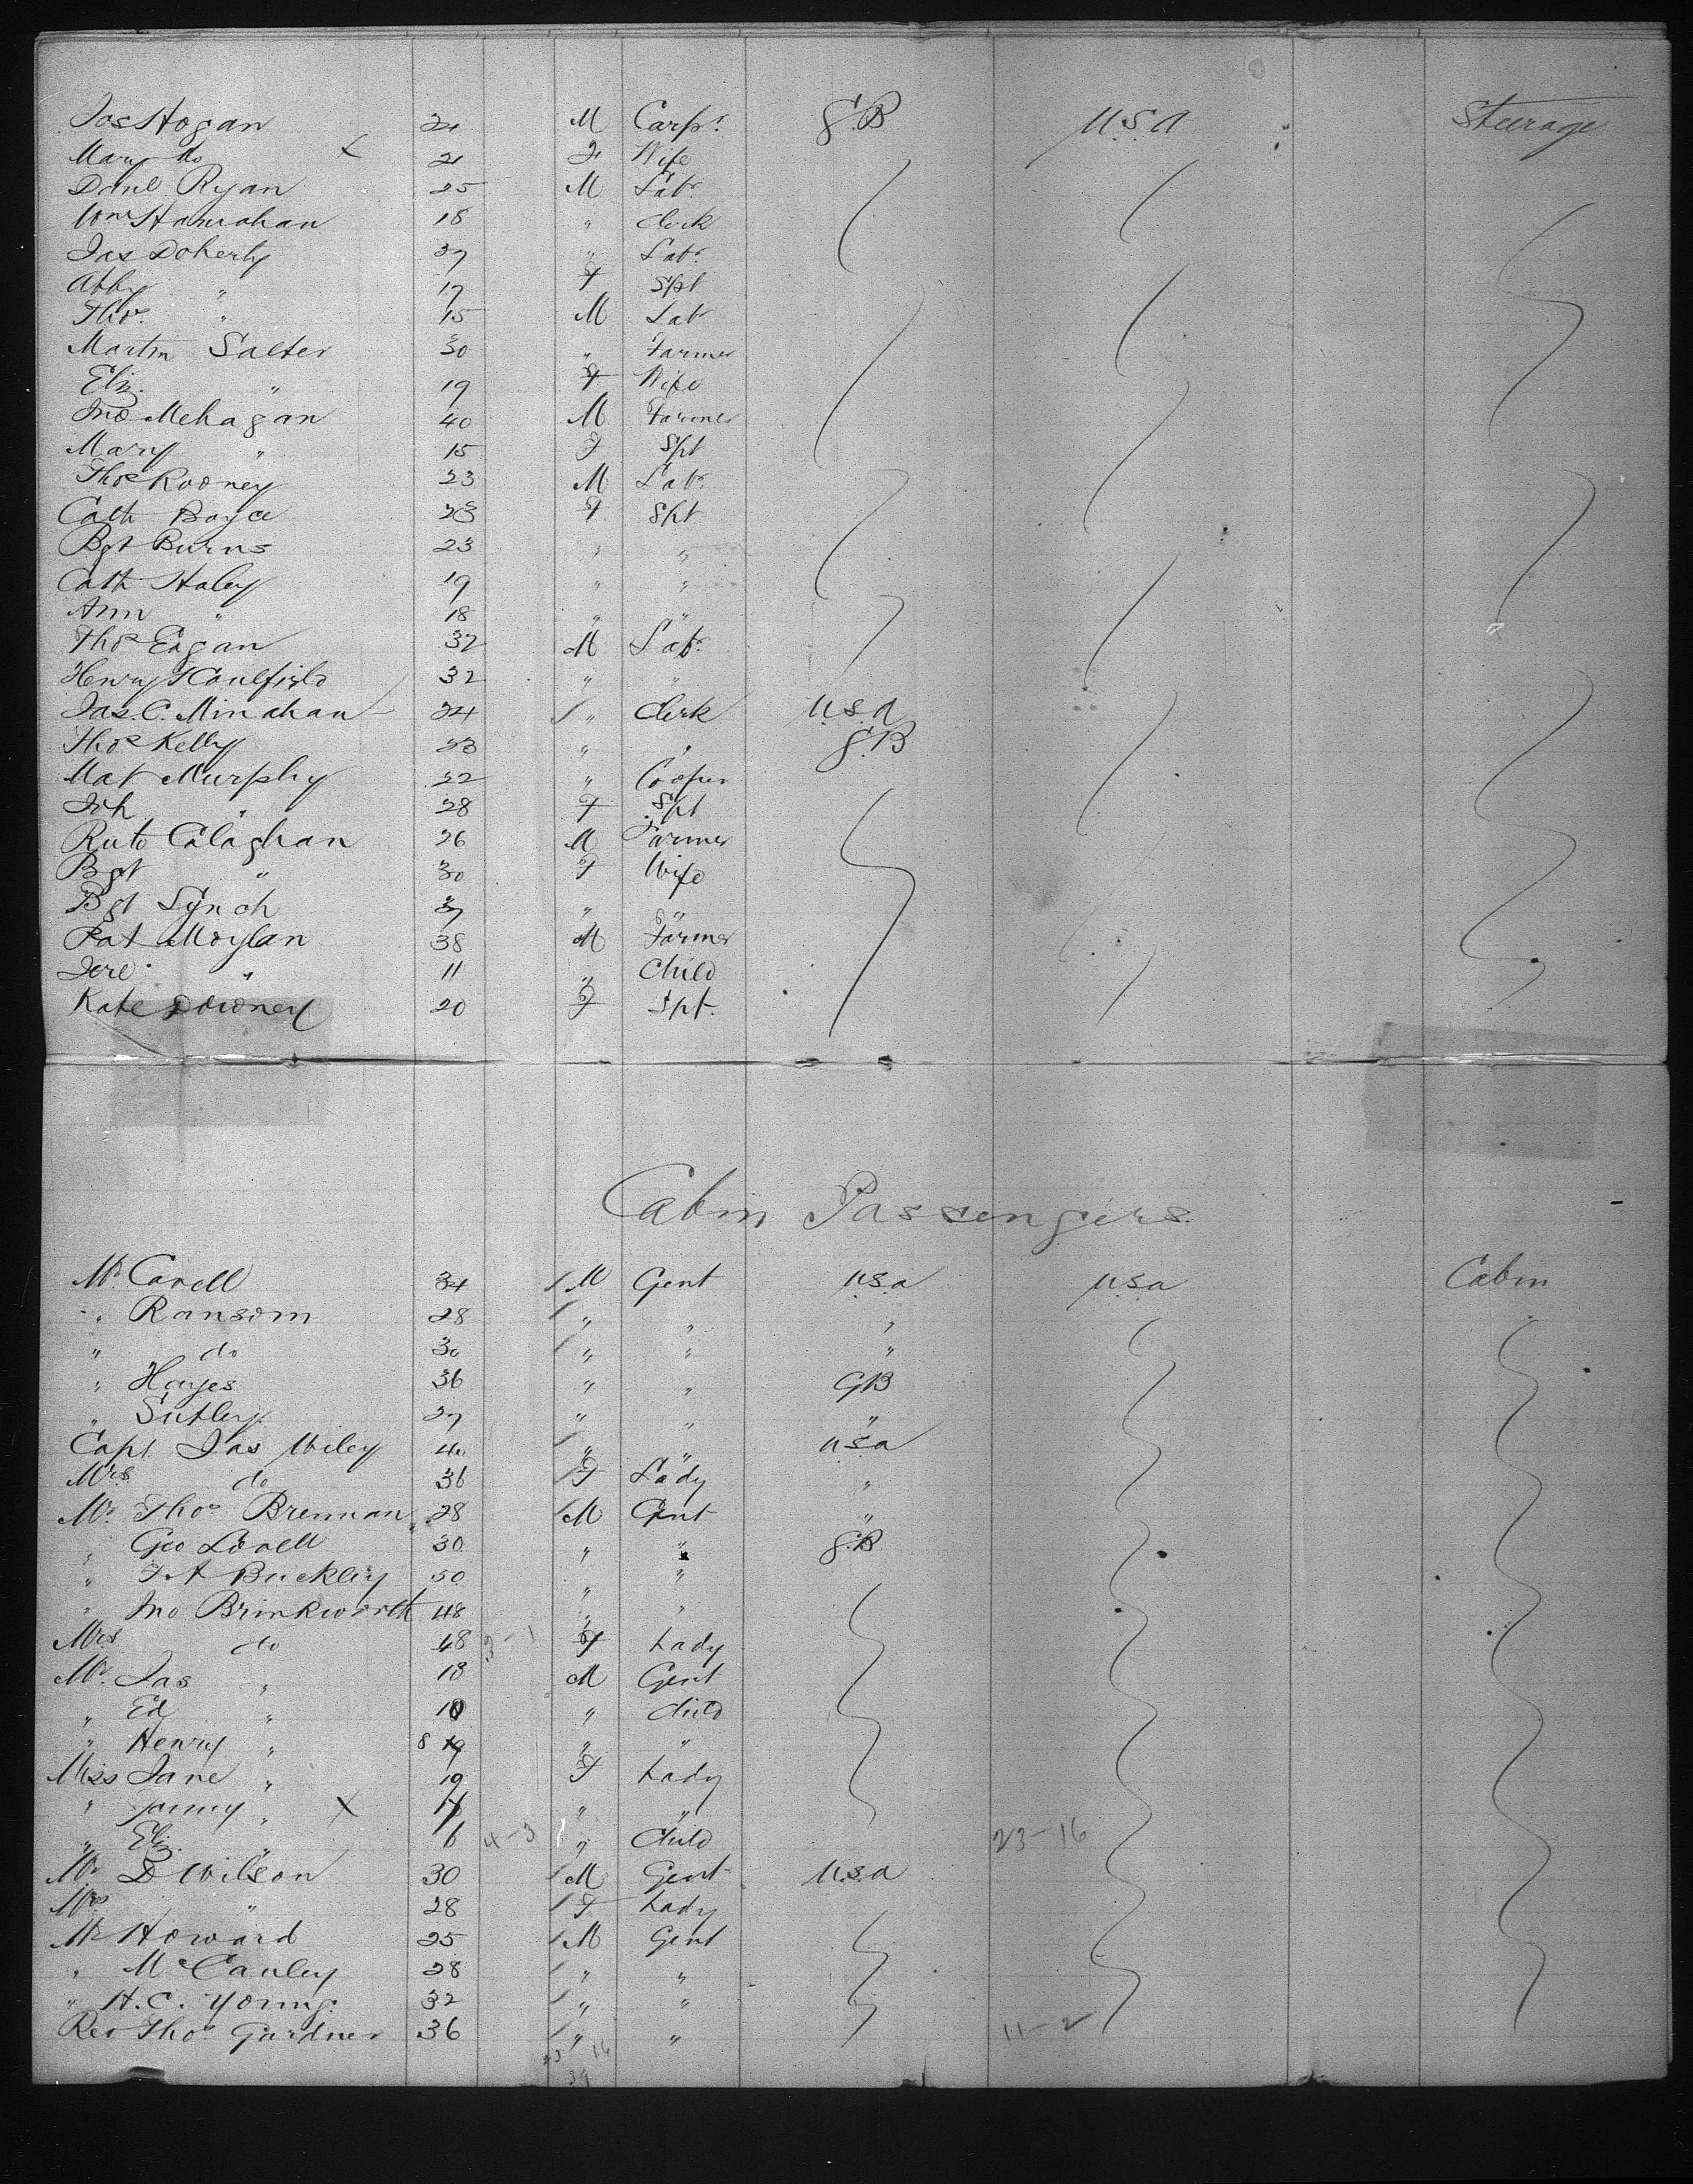 Jas Hogan 24 M Carpr. G.B U.S.A Steerage
Mary do X 21 F Wife
Danl Ryan 25 M Labr.
Wm Hanrahan 18 " Clerk
Jas Doherty 27 " Labr.
Abby " 17 F Spt
Thos. " 15 M Labr
Martin Salter 30 " Farmer
Eliz. " 19 F Wife
Jno Mehagan 40 M Farmer
Mary " 15 F Spt
Thos Rooney 23 M Labr.
Cath Boyce 23 F Spt
Bgt Burns 23 " "
Cath Haley 19 " "
Ann " 18 " "
Thos Eagan 32 M Labr.
Henry Caulfield 32 " "
Jas. C. Minahan 24 / " Clerk U.S.A
Thos Kelly 23 " " G.B
Mat Murphy 22 " Cooper
Joh " 28 F Spt
Calaghan 26 M Farmer
Bgt " 30 F Wife
Bgt Lynch 37 " "
Pat Moylan 38 M Farmer
Jere. " 11 " Child
Kate Downey 20 F Spt.
Cabin Passengers.
Mr. Carell 34 / M Gent U.S.a U.S.a Cabin
" Ransom 28 / " " "
" do 30 / " " "
" Hayes 36 " " GB
" Sutley 27 " " "
Capt Jas Wiley 40 / " " U.S.a
Mrs do 36 / F Lady "
Mr. Thos Brennan 28 / M Gent "
" Geo Lovell 30 " " G.B
" J A Buckley 50 " "
" Jno Brinkworth 48 " "
Mrs do 48 3-1 F Lady
Mr. Jas " 18 M Gent
" Ed " 10 " Child
" Henry " 8 19 " "
Miss Jane " 19 F Lady
" " X " "
" Eliz. " 6 4-3 / " Child 23-16
Mr D Wilson 30 / M Gent U.S.a
Mrs " 28 / F Lady
Mr Howard 25 / M Gent
" McCauley 28 / " "
" H.C. Young. 32 / " "
Rev Thos Gardner 36 / " " 11-2
23 16
39